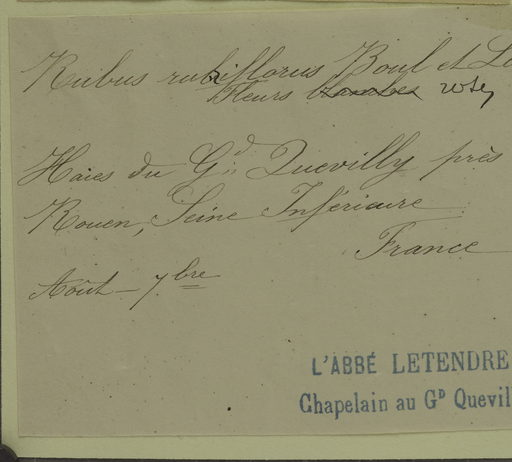 Rubus rubriflorus Boul et Le
Fleurs blanches roses
Haies du Gnd Quevilly près
Rouen, Seine Inférieure
France
Août - 7bre
L'ABBÉ LETENDRE
Chapelain au GD Quevil